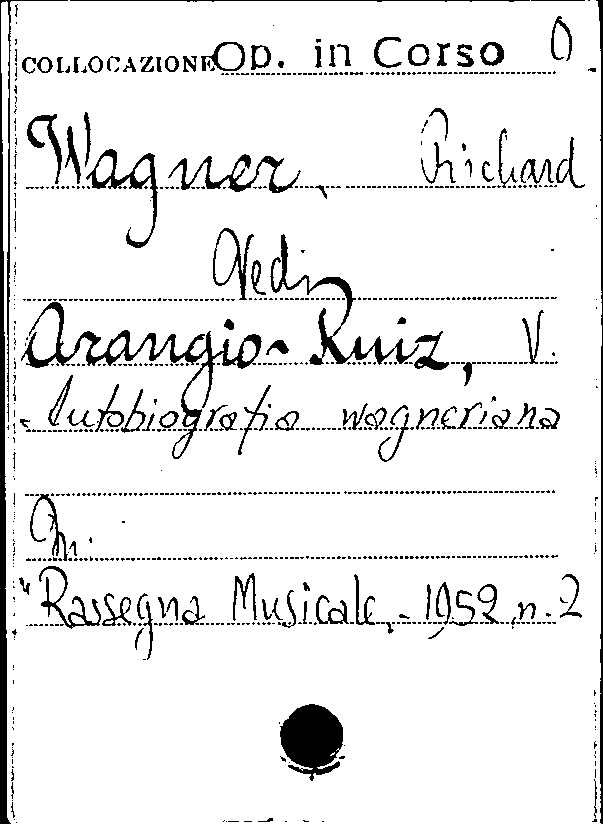 COLLOCAZIONE Op. in Corso O
Wagner, Richard
Vedi
Arangio-Ruiz, V.
Autobiografia wagneriana
In.
"Rassegna Musicale, - 1952, n. 2